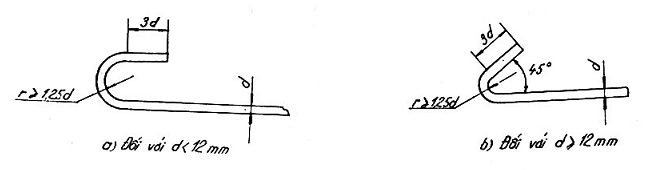 3d
r ≥ 1,25d
d
a) Đối với d < 12 mm
3d
45°
d
r ≥ 1,25d
b) Đối với d ≥ 12 mm